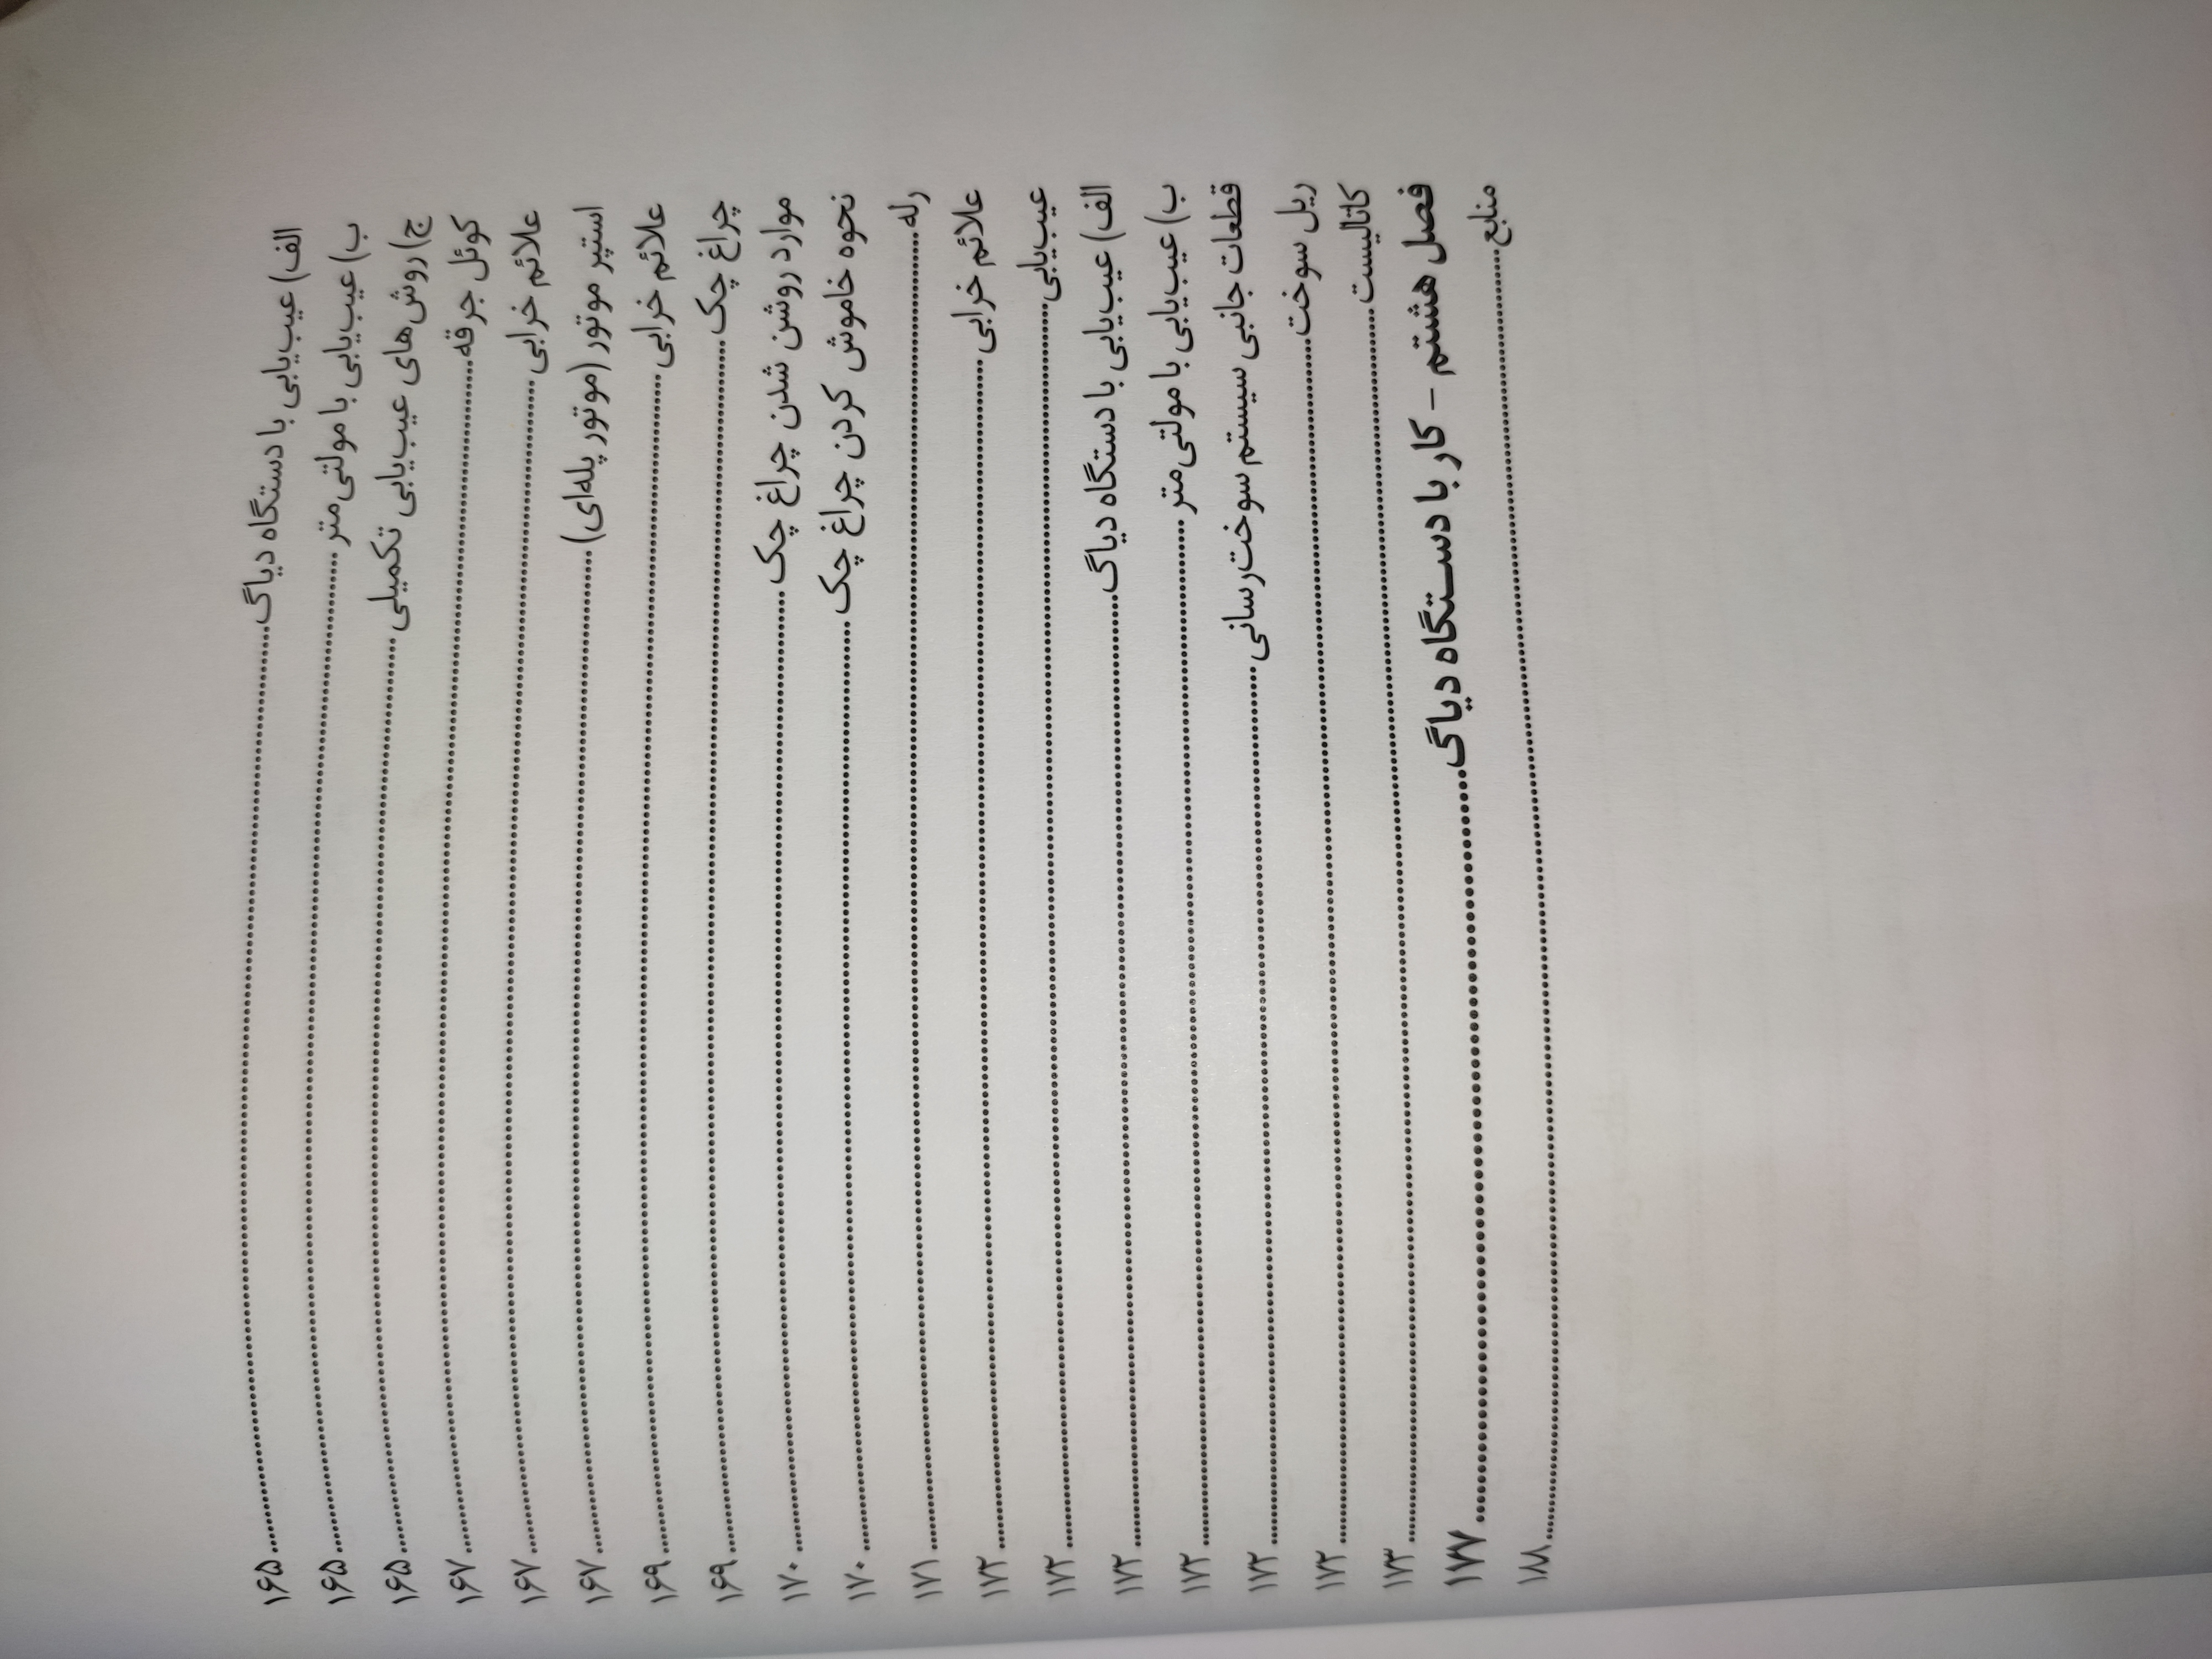 الف) عیب‌یابی با دستگاه دیاگ ۱۶۵
ب) عیب‌یابی با مولتی‌متر ۱۶۵
ج) روش‌های عیب‌یابی تکمیلی ۱۶۵
کوئل جرقه ۱۶۷
علائم خرابی ۱۶۷
استپر موتور (موتور پله‌ای) ۱۶۷
علائم خرابی ۱۶۹
چراغ چک ۱۶۹
موارد روشن شدن چراغ چک ۱۷۰
نحوه خاموش کردن چراغ چک ۱۷۰
رله ۱۷۱
علائم خرابی ۱۷۲
عیب‌یابی ۱۷۲
الف) عیب‌یابی با دستگاه دیاگ ۱۷۲
ب) عیب‌یابی با مولتی‌متر ۱۷۲
قطعات جانبی سیستم سوخت‌رسانی ۱۷۲
ریل سوخت ۱۷۲
کاتالیست ۱۷۳
فصل هشتم - کار با دستگاه دیاگ ۱۷۷
منابع ۱۸۸